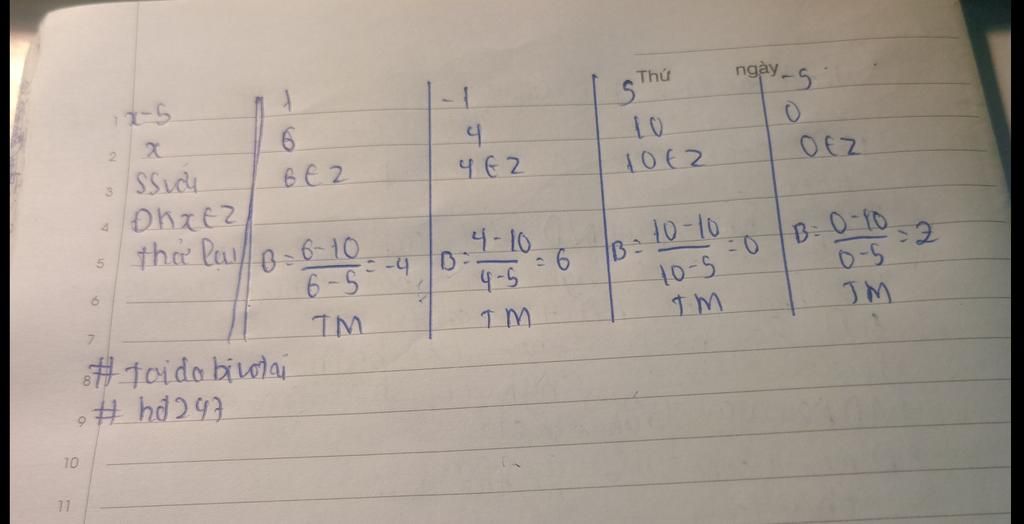 Thứ ngày
x-5 1 -1 5 -5
x 6 4 10 0
SSvới 6∈Z 4∈Z 10∈Z 0∈Z
ĐKx∈Z
thử lại B=6-10/6-5=-4 B=4-10/4-5=6 B=10-10/10-5=0 B=0-10/0-5=2
TM TM TM TM
# toidabivotai
# hd247
1
2
3
4
5
6
7
8
9
10
11